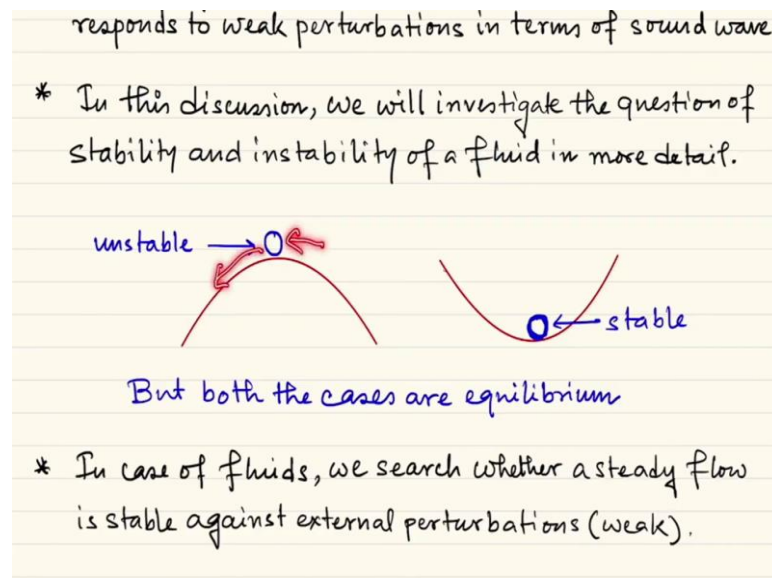 responds to weak perturbations in terms of sound wave
* In this discussion, we will investigate the question of
stability and instability of a fluid in more detail.
unstable
stable
But both the cases are equilibrium
* In case of fluids, we search whether a steady flow
is stable against external perturbations (weak).